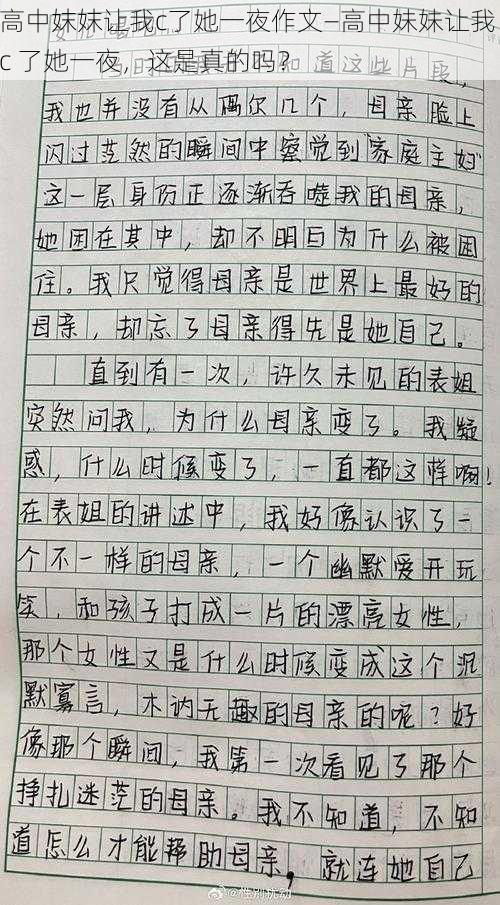 高中妹妹让我c了她一夜作文—高中妹妹让我
c 了她一夜，这是真的吗？
道这些片段，
我也并没有从偶尔几个，母亲脸上
闪过茫然的瞬间中察觉到“家庭主妇”
这一层身份正逐渐吞噬我的母亲，
她困在其中，却不明白为什么被困
住。我只觉得母亲是世界上最好的
母亲，却忘了母亲得先是她自己。
直到有一次，许久未见的表姐
突然问我，为什么母亲变了。我疑
惑，什么时候变了，一直都这样啊！
在表姐的讲述中，我好像认识了一
个不一样的母亲，一个幽默爱开玩
笑，和孩子打成一片的漂亮女性，
那个女性又是什么时候变成这个沉
默寡言，木讷无趣的母亲的呢？好
像那个瞬间，我第一次看见了那个
挣扎迷茫的母亲。我不知道，不知
道怎么才能帮助母亲，就连她自己
@性别扰动